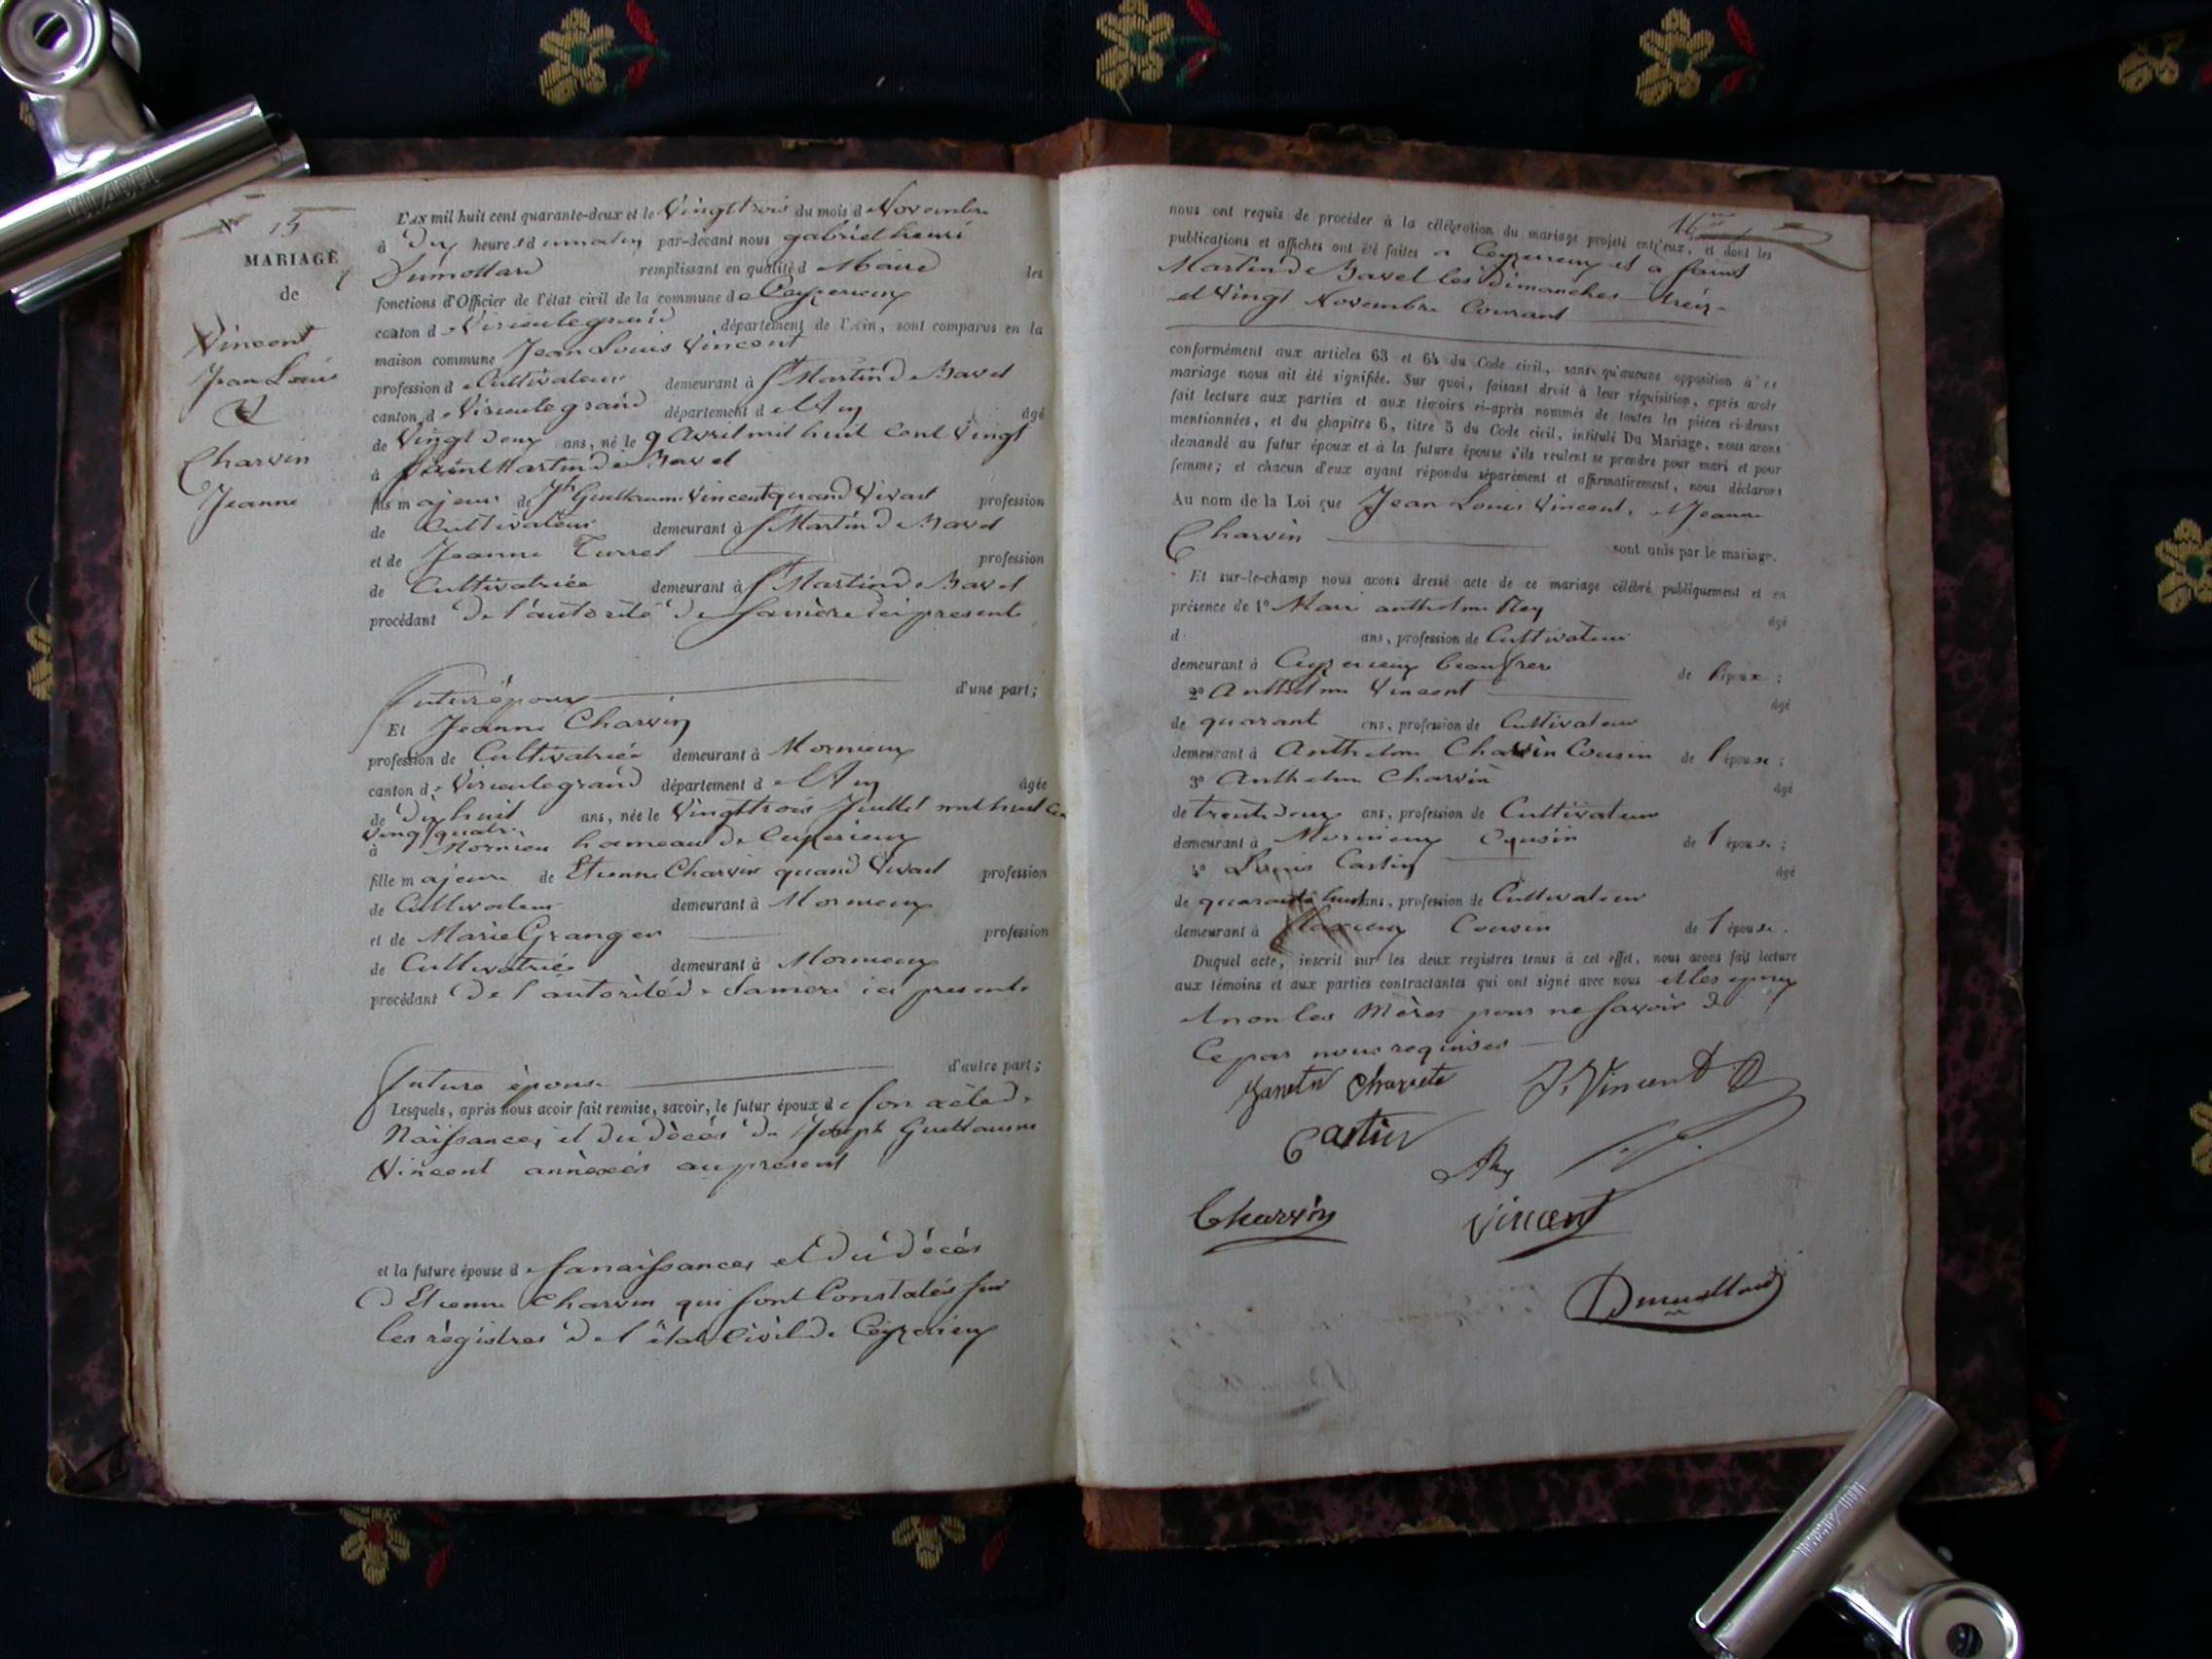 N° 15
MARIAGE
de
Vincent
Jean Louis
&
Charvin
Jeanne
L'AN mil huit cent quarante-deux et le Vingttrois du mois de Novembre
à dix heures du matin par-devant nous gabriel henri
Dumollard remplissant en qualité de Maire les
fonctions d'Officier de l'état civil de la commune de Ceyzerieux
canton de Virieulegrand département de l'Ain, sont comparus en la
maison commune Jean Louis Vincent
profession de Cultivateur demeurant à St Martin de Bavel
canton de Virieulegrand département de l'Ain âgé
de Vingt deux ans, né le 9 Avril mil huit Cent Vingt
à Saint Martin de Bavel
fils majeur de Jh Guillaume Vincent quand Vivait profession
de Cultivateur demeurant à St Martin de Bavel
et de Jeanne Turrel profession
de Cultivatrice demeurant à St Martin de Bavel
procédant de l'autorité de sa mère ici présente
futur époux d'une part;
Et Jeanne Charvin
profession de Cultivatrice demeurant à Mornieux
canton de Virieulegrand département de l'Ain âgée
de dix huit ans, née le Vingttrois Juillet mil huit Cent
Vingt quatre
à Mornieu hameau de Ceyzerieux
fille majeure de Etienne Charvin quand Vivait profession
de Cultivateur demeurant à Mornieux
et de Marie Granger profession
de Cultivatrice demeurant à Mornieux
procédant de l'autorité de Sa mère ici présente
future épouse d'autre part;
Lesquels, après nous avoir fait remise, savoir, le futur époux de son acte de
Naissances et du décés de Joseph Guillaume
Vincent annéxés au présent
et la future épouse de sa naissances et du décés
d'Etienne Charvin qui sont Constatés sur
les régistres de l'état Civil de Ceyzerieux
16
nous ont requis de procéder à la célébration du mariage projeté entr'eux, et dont les
publications et affiches ont été faites à Ceyzerieux et à Saint
Martin de Bavel les Dimanches treize
et Vingt Novembre Courant
conformément aux articles 63 et 64 du Code civil, sans qu'aucune opposition à ce
mariage nous ait été signifiée. Sur quoi, faisant droit à leur réquisition, après avoir
fait lecture aux parties et aux témoins ci-après nommés de toutes les pièces ci-dessus
mentionnées, et du chapitre 6, titre 5 du Code civil, intitulé Du Mariage, nous avons
demandé au futur époux et à la future épouse s'ils veulent se prendre pour mari et pour
femme; et chacun d'eux ayant répondu séparément et affirmativement, nous déclarons
Au nom de la Loi que Jean Louis Vincent, et Jeanne
Charvin sont unis par le mariage.
Et sur-le-champ nous avons dressé acte de ce mariage célébré publiquement et en
présence de 1° Marie anthelme Rey âgé
d ans, profession de Cultivateur
demeurant à Ceyzerieux beaufrere de l'époux;
2° Anthelme Vincent âgé
de quarant ans, profession de Cultivateur
demeurant à Anthelme Charvin Cousin de l'épouse;
3° Anthelme Charvin âgé
de trente deux ans, profession de Cultivateur
demeurant à Mornieux Cousin de l'épouse;
4° Louis Castin âgé
de quarante huit ans, profession de Cultivateur
demeurant à Cousin de l'épouse.
Duquel acte, inscrit sur les deux registres tenus à cet effet, nous avons fait lecture
aux témoins et aux parties contractantes qui ont signé avec nous et les époux
et non les Mères pour ne savoir de
Ce par nous requises
J. Vincent
Rey
Charvin
Vincent
Dumollard